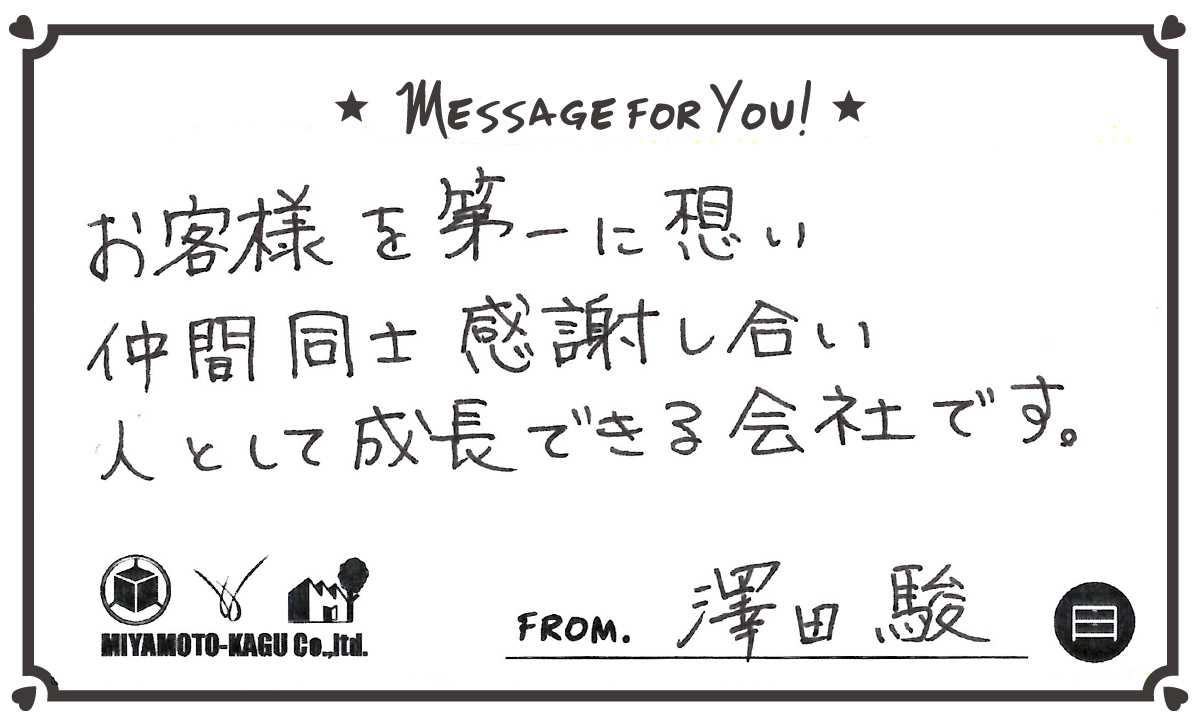 ★ MESSAGE FOR YOU! ★
お客様を第一に想い
仲間同士感謝し合い
人として成長できる会社です。
MIYAMOTO-KAGU Co.,ltd.
FROM. 澤田 駿